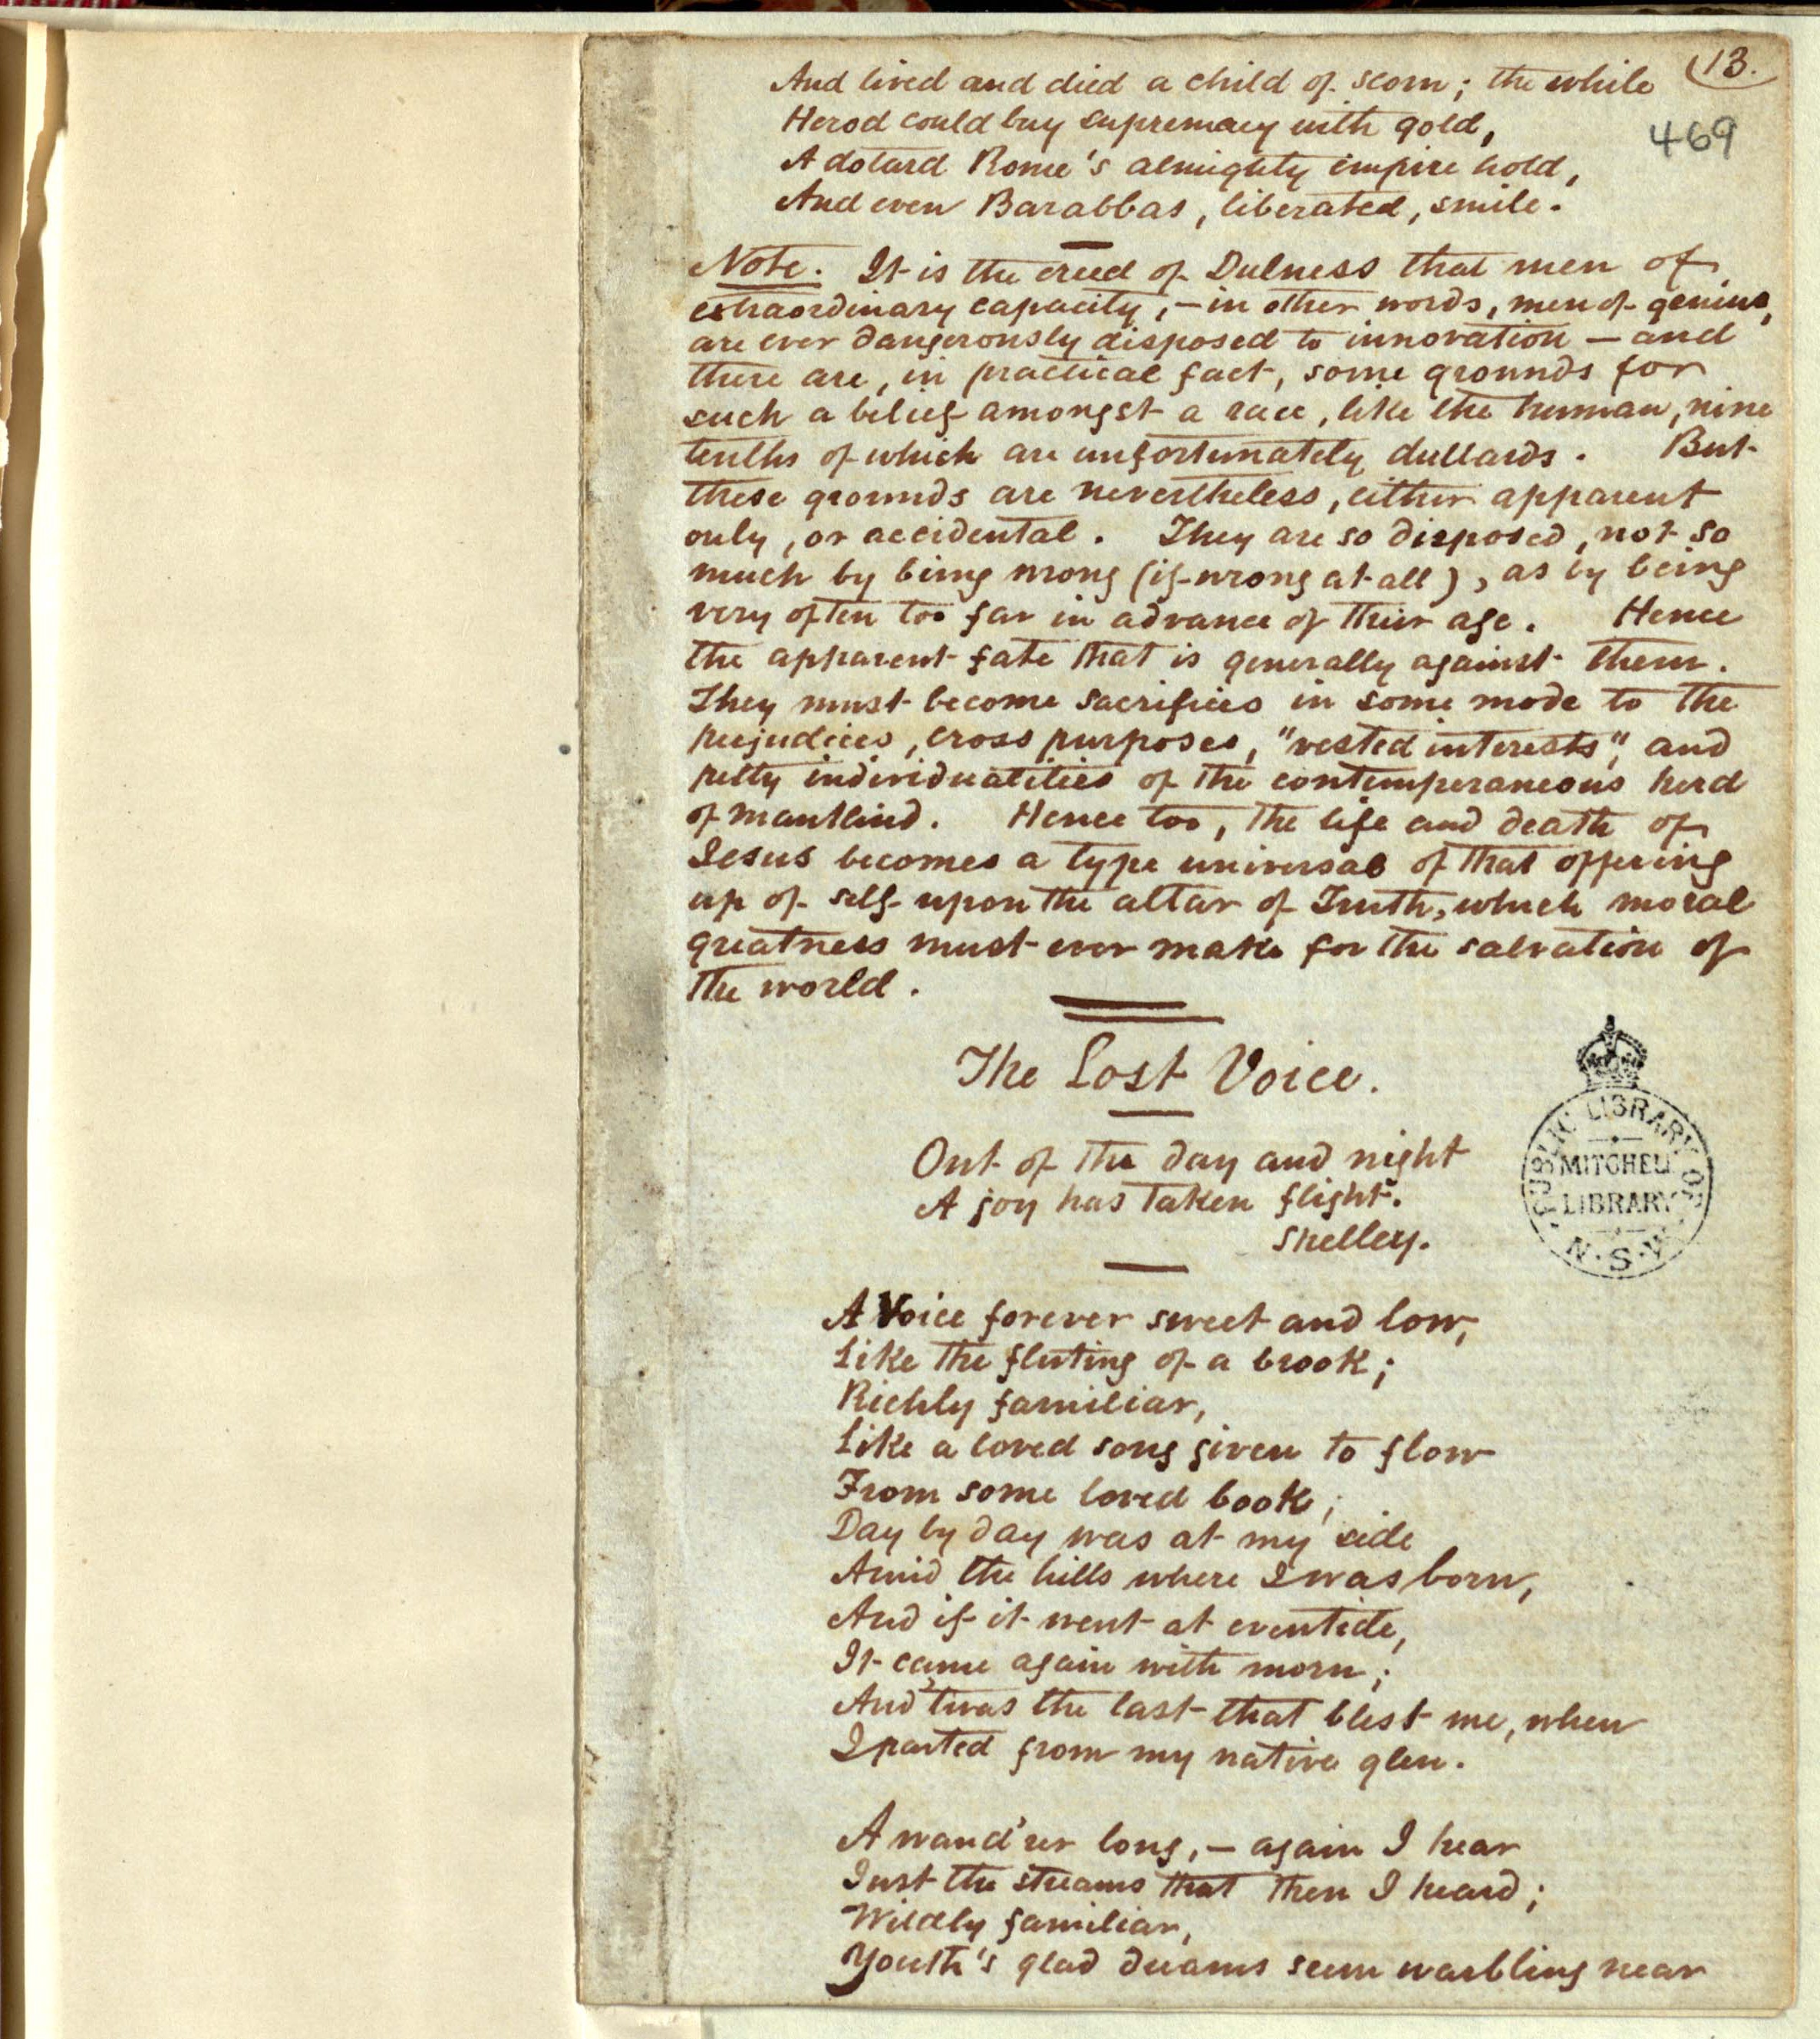 13.
And lived and died a child of scorn; the while
469
Herod could buy supremacy with gold,
A dotard Rome's almighty empire hold,
And even Barabbas, liberated, smile.
Note. It is the creed of Dulness that men of
extraordinary capacity, – in other words, men of genius,
are ever dangerously disposed to innovation – and
there are, in practical fact, some grounds for
such a belief amongst a race, like the human, nine
tenths of which are unfortunately dullards. But
these grounds are nevertheless, either apparent
only, or accidental. They are so disposed, not so
much by being wrong (if wrong at all), as by being
very often too far in advance of their age. Hence
the apparent fate that is generally against them.
They must become sacrifices in some mode to the
prejudices, cross purposes, "vested interests", and
petty individualities of the contemperaneous herd
of mankind. Hence too, the life and death of
Jesus becomes a type universal of that offering
up of self upon the altar of Truth, which moral
greatness must ever make for the salvation of
the world.
The Lost Voice.
Out of the day and night
A joy has taken flight.
Shelley.
PUBLIC LIBRARY OF
MITCHELL
LIBRARY
N.S.W.
A Voice forever sweet and low,
Like the fluting of a brook;
Richly familiar,
Like a loved song given to flow
From some loved book;
Day by day was at my side
Amid the hills where I was born,
And if it went at eventide,
It came again with morn;
And 'twas the last that blest me, when
I parted from my native glen.
A wand'rer long, – again I hear
Just the streams that then I heard;
Wildly familiar,
Youth's glad dreams seem warbling near